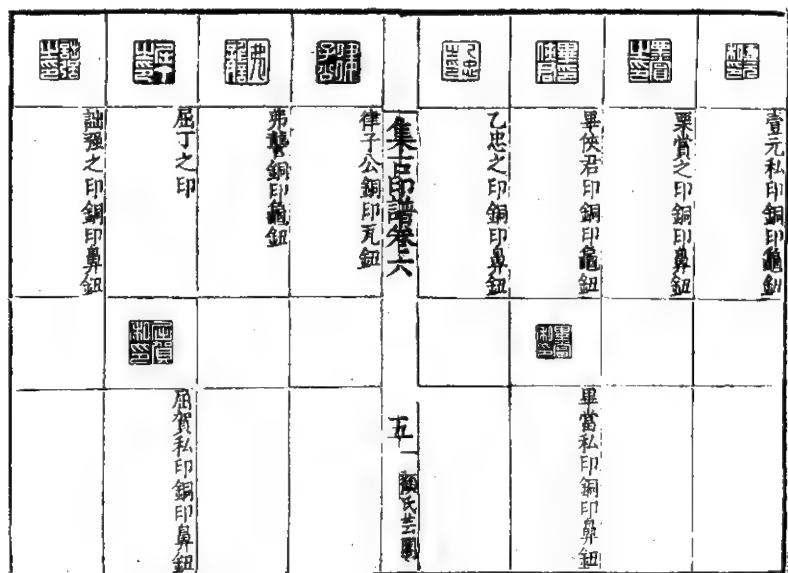 壹元私印銅印龜鈕
栗賞之印銅印鼻鈕
畢俠君印銅印龜鈕
畢當私印銅印鼻鈕
乙忠之印銅印鼻鈕
集古印譜卷六
五
顧氏芸閣
律子公銅印瓦鈕
弗龔銅印龜鈕
屈丁之印
屈賀私印銅印鼻鈕
詘强之印銅印鼻鈕